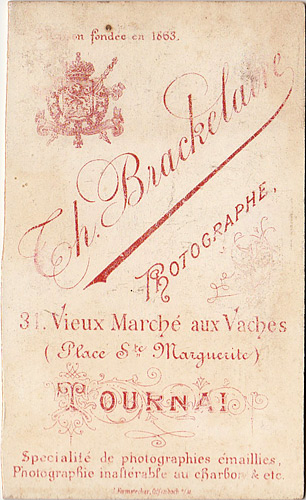 Maison fondée en 1863.
Th. Brackelaire
PHOTOGRAPHE,
31. Vieux Marché aux Vaches
( Place Ste Marguerite )
TOURNAI
Specialité de photographies émaillées,
Photographie inaltérable au charbon & etc.